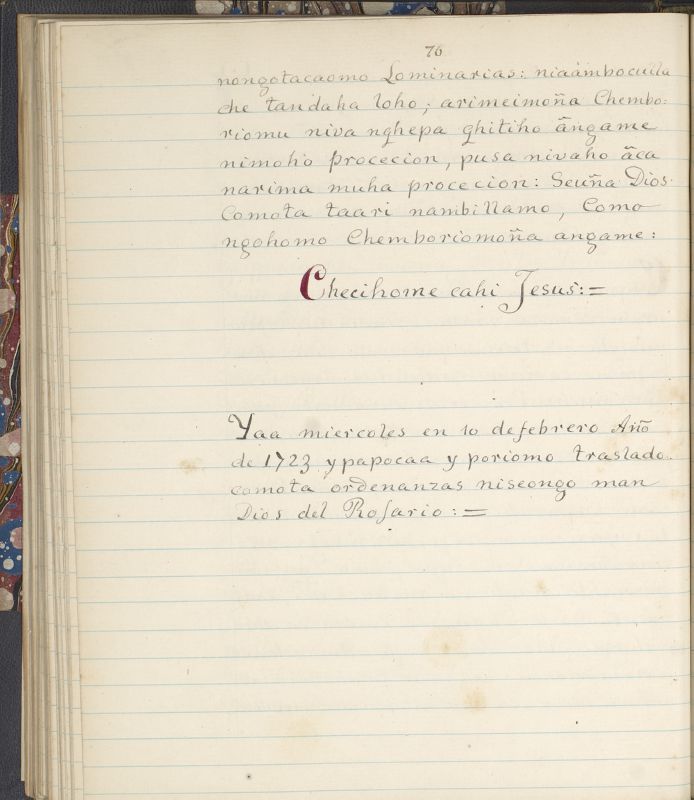 76
nongotacaomo Lominarias: niaambocuila
che tandaha loho; arimeimoña Chembo:
riomu niva nqhepa qhitiho ãngame
nimoho procecion, pusa nivaho ãca
narima muha procecion: Seuña Dios.
Comota taari nambillamo, Como
ngohomo Chemboriomoña angame:
Checihome cahi Jesus:=
Yaa miercoles en 10 de febrero Año
de 1723 y papocaa y poriomo traslado.
comota ordenanzas niseongo man
Dios del Rosario:=